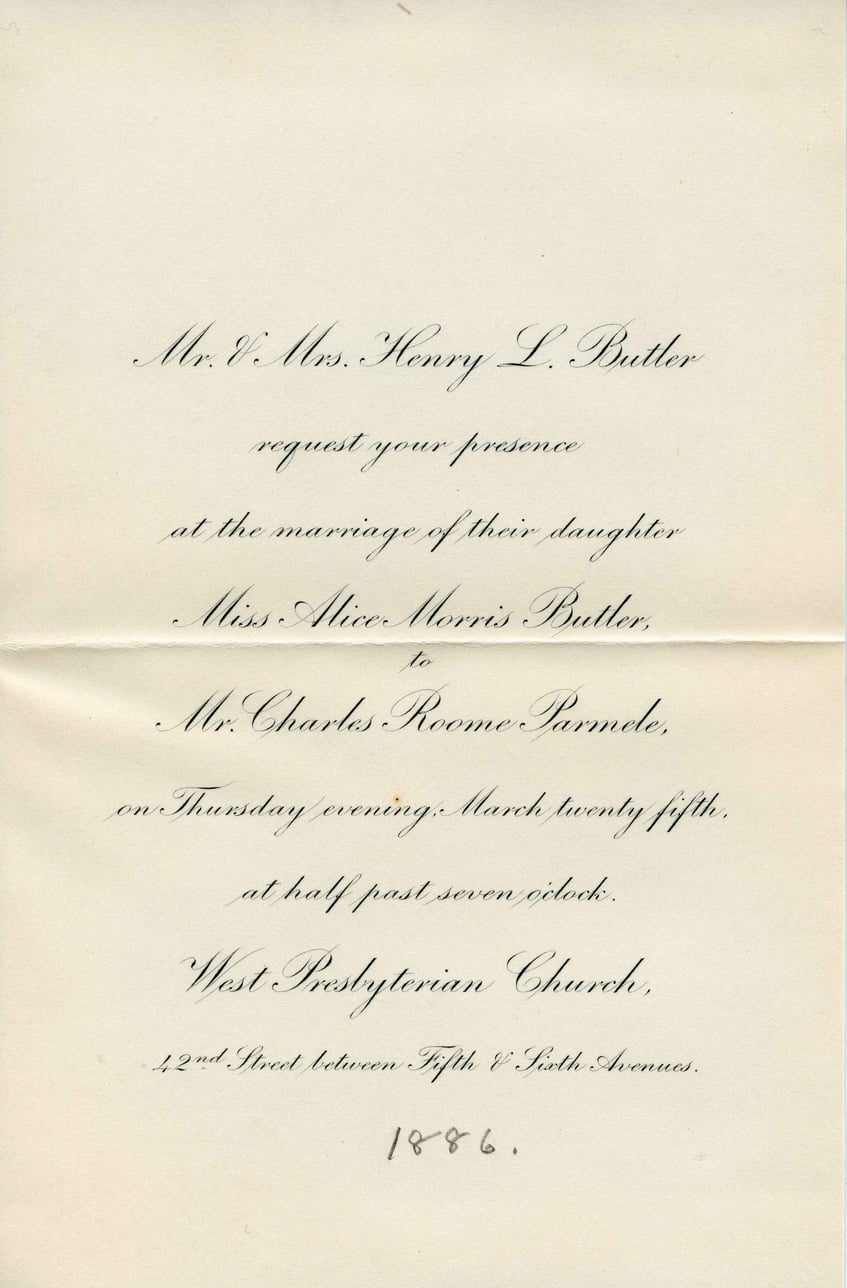 Mr. & Mrs. Henry L. Butler
request your presence
at the marriage of their daughter
Miss Alice Morris Butler,
to
Mr. Charles Roome Parmele,
on Thursday evening, March twenty fifth,
at half past seven o'clock.
West Presbyterian Church,
42nd Street between Fifth & Sixth Avenues.
1886.